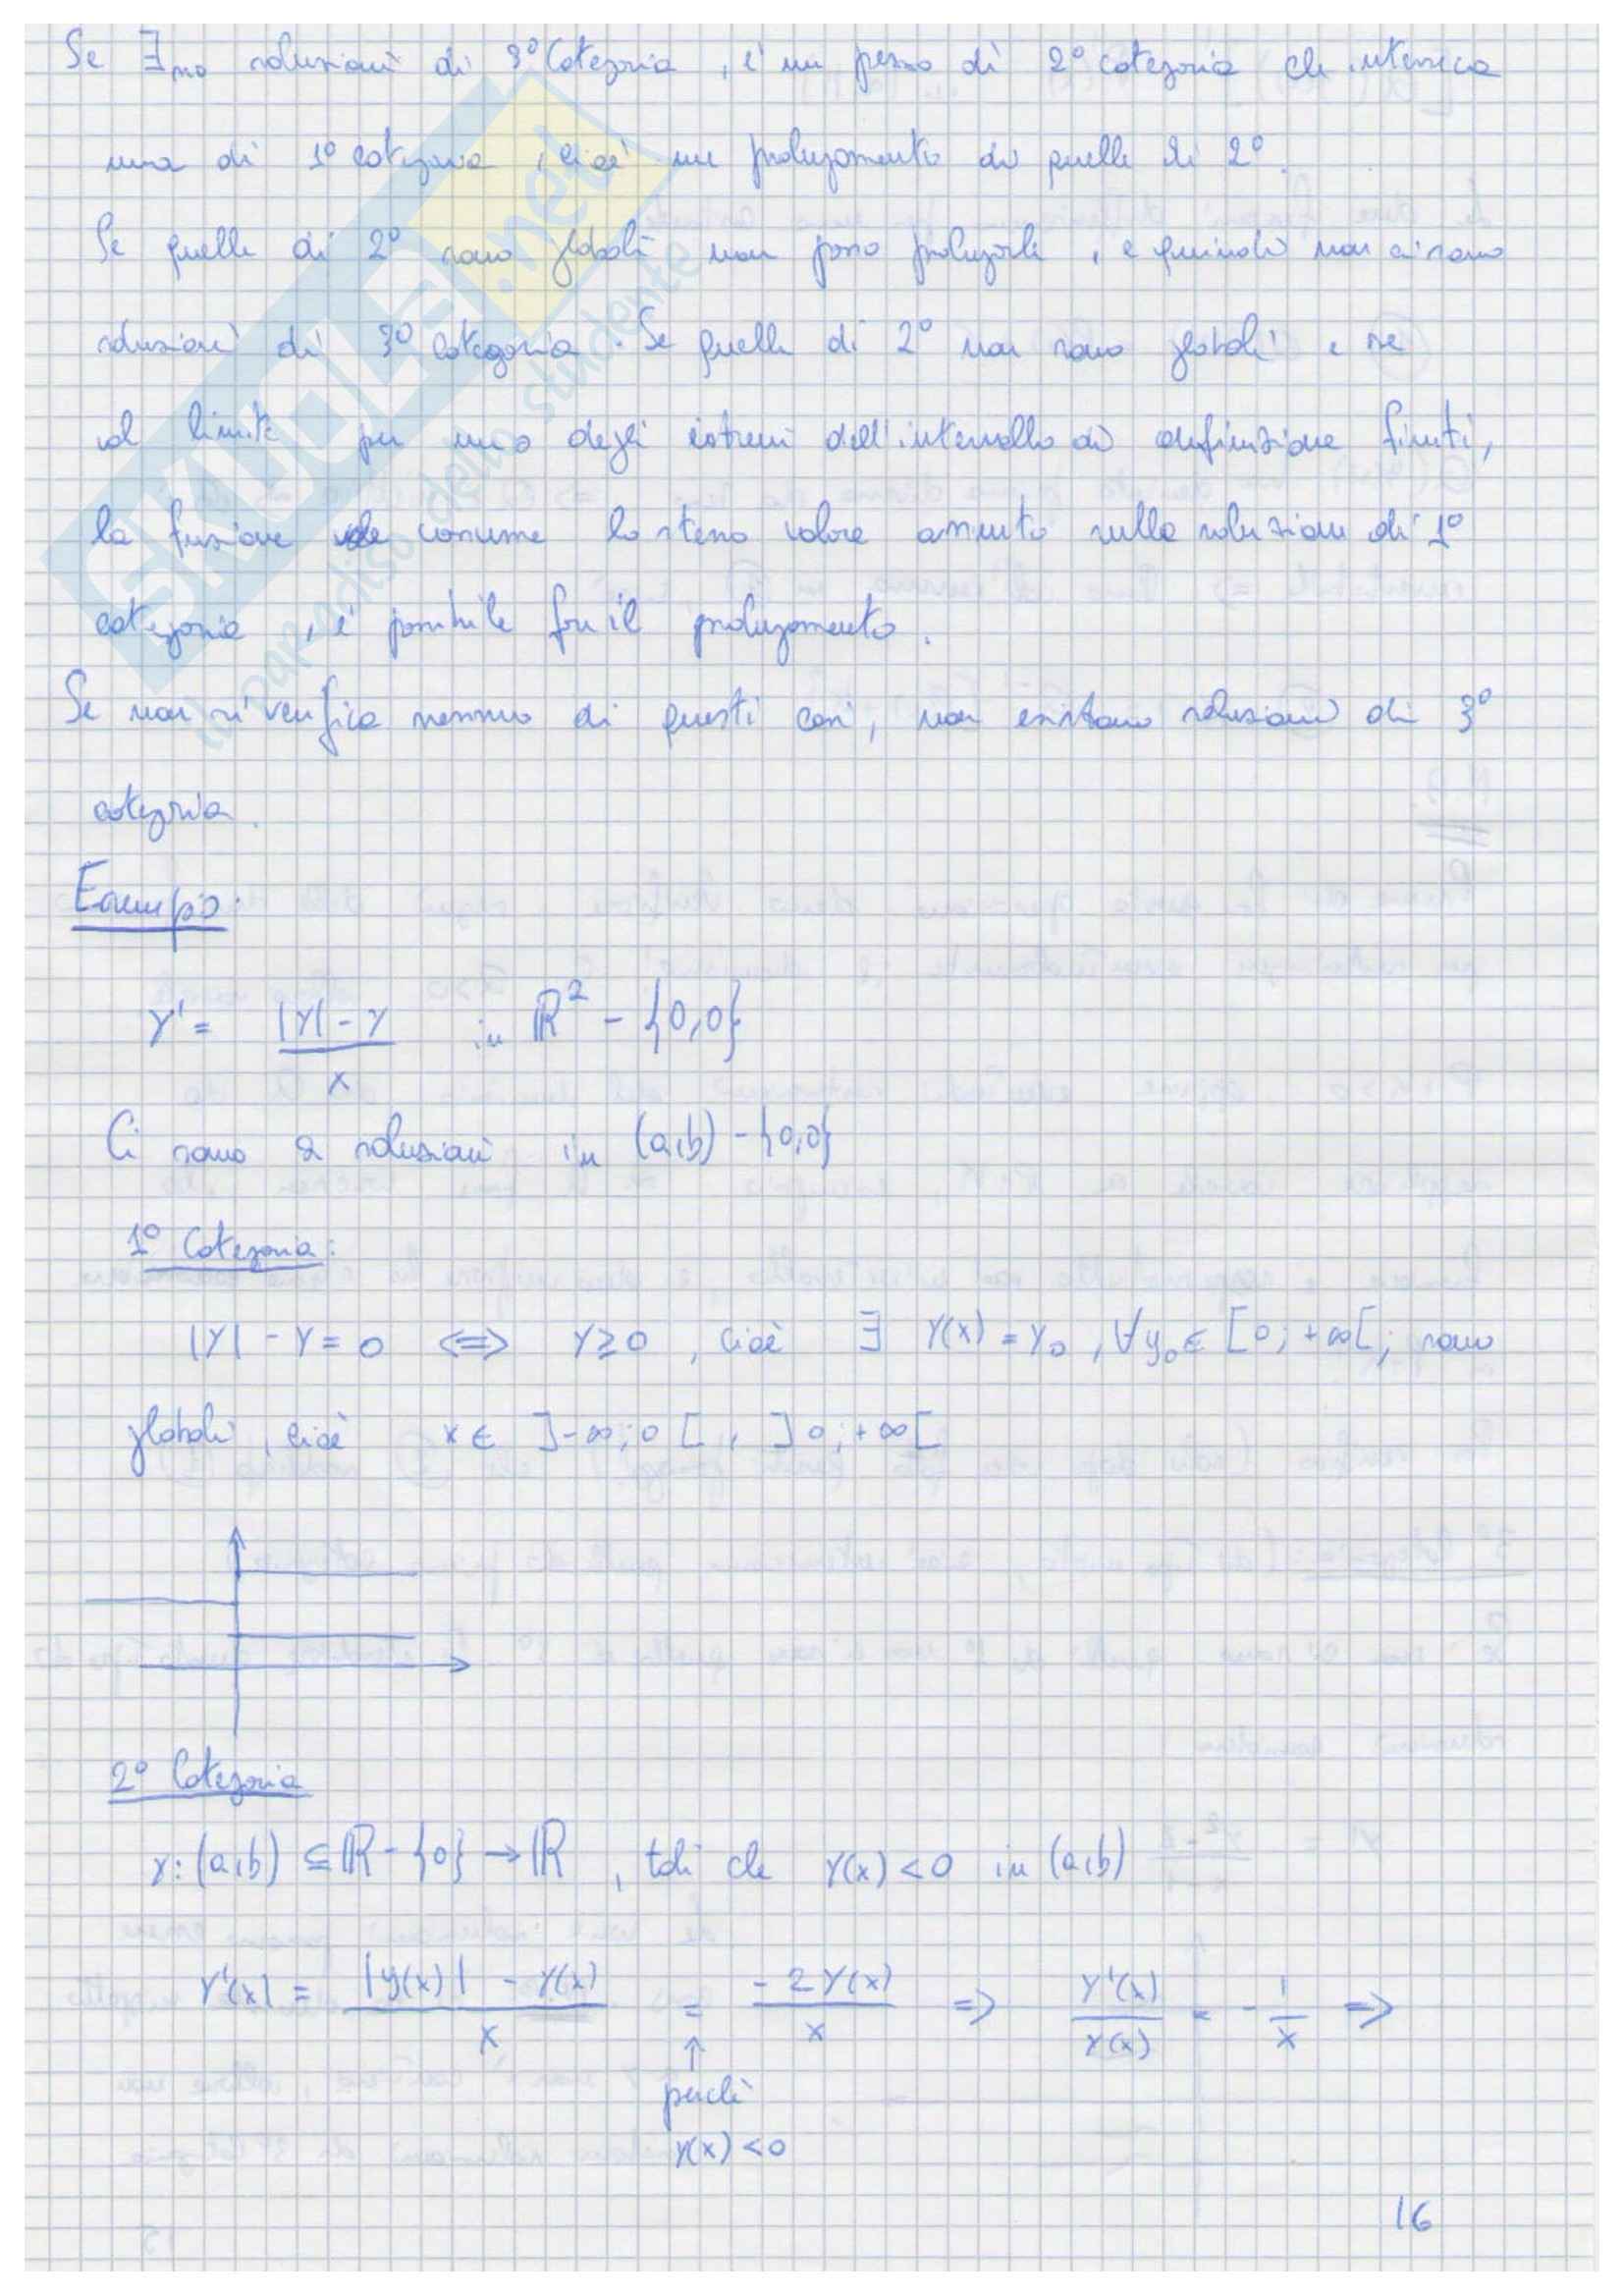 Se ∃no soluzioni di 3° Categoria, è un pezzo di 2° categoria che interseca
una di 1° categoria, cioè un prolungamento di quelle di 2°.
Se quelle di 2° sono globali non posso prolungarle, e quindi non ci sono
soluzioni di 3° categoria. Se quelle di 2° non sono globali e se
al limite per uno degli estremi dell'intervallo di definizione finiti,
la funzione assume lo stesso valore assunto sulla soluzione di 1°
categoria, è possibile fare il prolungamento.
Se non si verifica nessuno di questi casi, non esistono soluzioni di 3°
categoria.
Esempio:
Y' = (|Y| - Y) / x in ℝ² - {0,0}
Ci sono 2 soluzioni in (a,b) - {0,0}
1° Categoria:
|Y| - Y = 0 <=> Y ≥ 0, cioè ∃ Y(x) = Y₀, ∀ y₀ ∈ [0; +∞[; sono
globali, cioè x ∈ ]-∞; 0[, ]0; +∞[
2° Categoria
Y: (a,b) ⊆ ℝ - {0} → ℝ, tali che Y(x) < 0 in (a,b)
Y'(x) = (|y(x)| - Y(x)) / x = -2Y(x) / x => Y'(x) / Y(x) = - 1/x =>
↑
perché
Y(x) < 0
16
SKUOLA.net
il paradiso dello studente